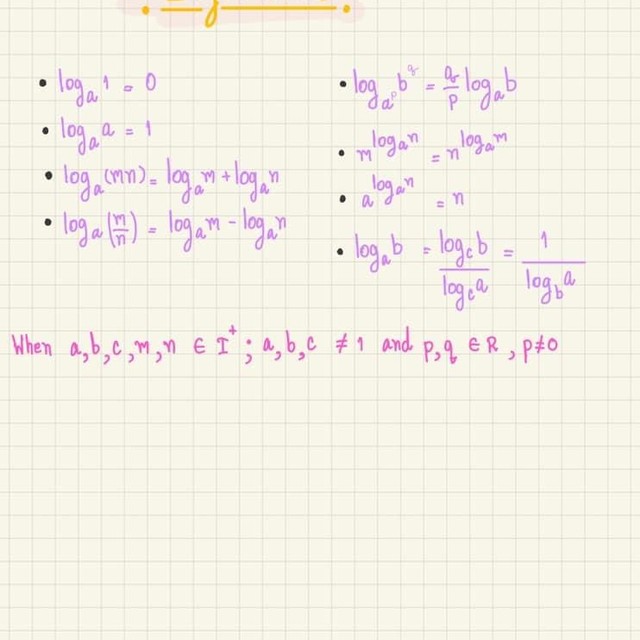 • logₐ 1 = 0
• logₐ a = 1
• logₐ(mn) = logₐ m + logₐ n
• logₐ(m/n) = logₐ m - logₐ n
• log_{a^p} b^q = q/p logₐ b
• m^{logₐ n} = n^{logₐ m}
• a^{logₐ n} = n
• logₐ b = log_c b / log_c a = 1 / log_b a
When a,b,c,m,n ∈ I⁺; a,b,c ≠ 1 and p,q ∈ R, p≠0